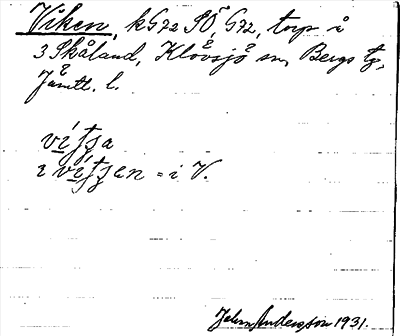 Viken, kG72 SÖ, G72, torp i
3 Skåland, Klövsjö sn, Bergs tg,
Jämtl. l.
i = i V.
John Andersson 1931.